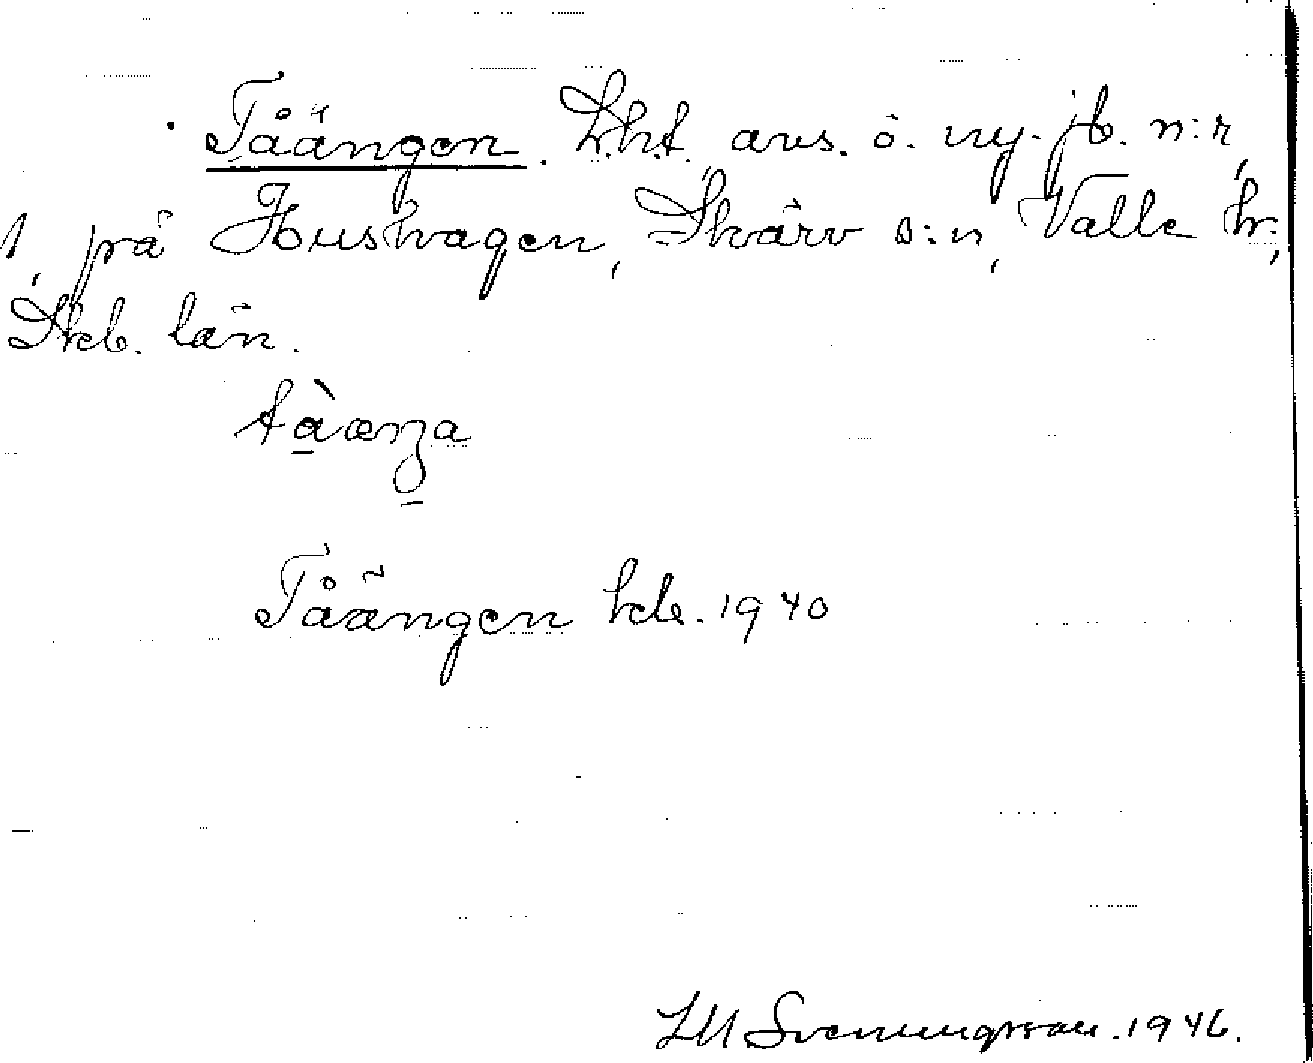 Tåängen. Lht, avs. o. ny. jb. n:r
1 på Hushagen, Skärv s:n, Valle hr,
Skb. län.
tàæŋa
Tåängen hde. 1940
LM Svenungsson. 1946.